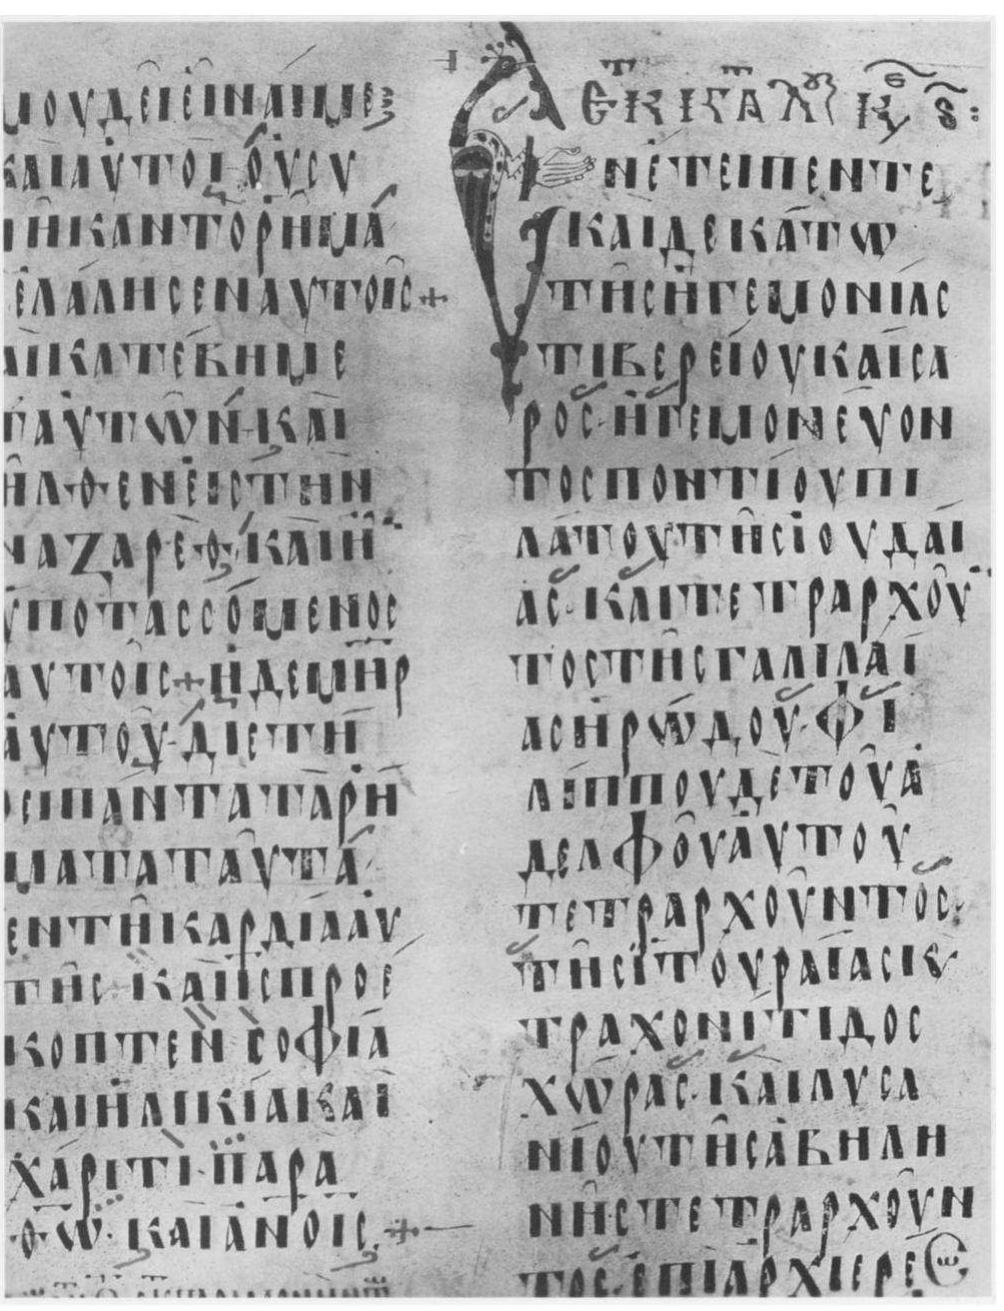 μου δεῖ εἶναί με;
καὶ αὐτοὶ οὐ συ
νῆκαν τὸ ῥῆμα
ἐλάλησεν αὐτοῖς +
καὶ κατέβη με
τ' αὐτῶν· καὶ
ἦλθεν εἰς τὴν
ναζαρέθ· καὶ ἦν
ὑποτασσόμενος
αὐτοῖς + ἡ δὲ μηρ
αὐτοῦ· διετή
ρει πάντα τὰ ῥή
ματα ταῦτα·
ἐν τῇ καρδίᾳ αὐ
τῆς· καὶ ις προέ
κοπτεν σοφίᾳ
καὶ ἡλικίᾳ καὶ
χάριτι· παρὰ
θῶ· καὶ ἀνοις +
ἐκ κατὰ λου
Ἐν ἔτει πεντε
καιδεκάτῳ
τῆς ἡγεμονίας
τιβερείου καίσα
ρος· ἡγεμονεύον
τος ποντίου πι
λάτου τῆς ἰουδαί
ας· καὶ τετραρχοῦν
τος τῆς γαλιλαί
ας ἡρώδου· φι
λίππου δὲ τοῦ ἀ
δελφοῦ αὐτοῦ
τετραρχοῦντος·
τῆς ἰτουραίας κ
τραχονίτιδος
χώρας· καὶ λυσα
νίου τῆς ἀβηλη
νῆς τετραρχοῦν
τος· ἐπὶ ἀρχιερέω